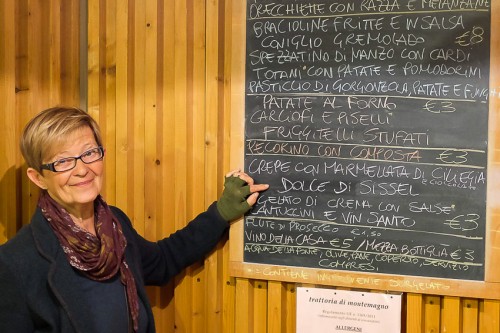 ORECCHIETTE CON RAZZA E MELANZANE
BRACIOLINE FRITTE E INSALSA
CONIGLIO GREMOLADO €8
SPEZZATINO DI MANZO CON CARDI
TOTANI* CON PATATE E POMODORINI
PASTICCIO DI GORGONZOLA, PATATE E FUNGHI
PATATE AL FORNO €3
CARCIOFI E PISELLI
FRIGGITELLI STUFATI
PECORINO CON COMPOSTA €3
CREPE CON MARMELLATA DI CILIEGIA
E CIOCCOLATO
DOLCE DI SISSEL
GELATO DI CREMA CON SALSE
CANTUCCINI E VIN SANTO €3
FLUTE DI PROSECCO €1.50
VINO DELLA CASA €5 / MEZZA BOTTIGLIA €3
ACQUA DELLA FONTE, PANE, COPERTO, SERVIZIO
COMPRESI
* CONTIENE INGREDIENTE SURGELATO
trattoria di montemagno
ALLERGENI